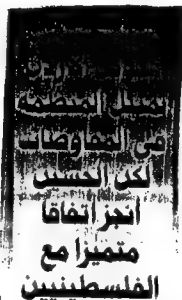 لتمثيل المنظمة
في المفاوضات
لكن الحسين
انجز اتفاقا
متميزا مع
الفلسطينيين